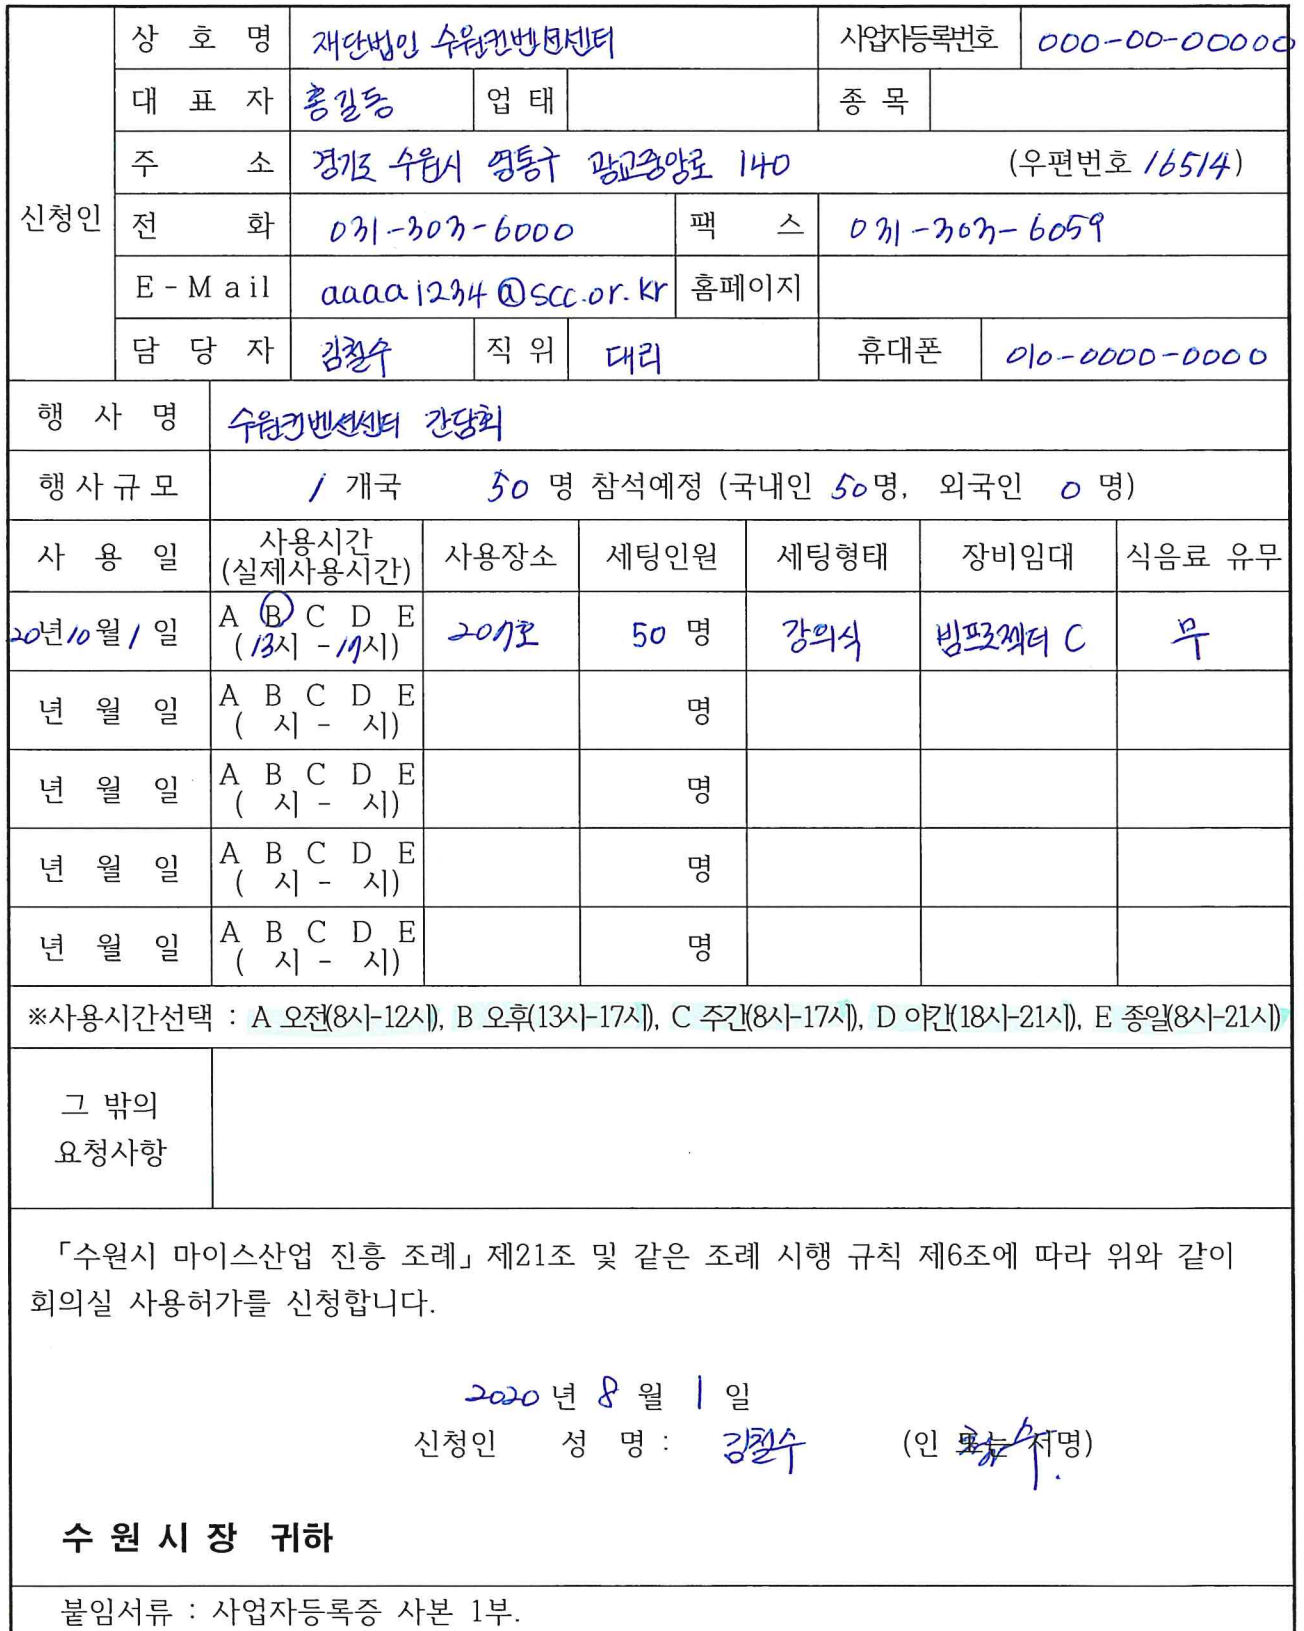 상 호 명 재단법인 수원컨벤션센터 사업자등록번호 000-00-00000
대 표 자 홍길동 업 태 종 목
주 소 경기도 수원시 영통구 광교중앙로 140 (우편번호 16514)
신청인 전 화 031-303-6000 팩 스 031-303-6059
E-Mail aaaa1234@scc.or.kr 홈페이지
담 당 자 김철수 직 위 대리 휴대폰 010-0000-0000
행 사 명 수원컨벤션센터 간담회
행사규모 1 개국 50 명 참석예정 (국내인 50명, 외국인 0 명)
사 용 일 사용시간 (실제사용시간) 사용장소 세팅인원 세팅형태 장비임대 식음료 유무
20년10월1일 A B C D E (13시 -17시) 207호 50 명 강의식 빔프로젝터 C 무
년 월 일 A B C D E ( 시 - 시) 명
년 월 일 A B C D E ( 시 - 시) 명
년 월 일 A B C D E ( 시 - 시) 명
년 월 일 A B C D E ( 시 - 시) 명
※사용시간선택 : A 오전(8시-12시), B 오후(13시-17시), C 주간(8시-17시), D 야간(18시-21시), E 종일(8시-21시)
그 밖의
요청사항
「수원시 마이스산업 진흥 조례」 제21조 및 같은 조례 시행 규칙 제6조에 따라 위와 같이
회의실 사용허가를 신청합니다.
2020 년 8 월 1 일
신청인 성 명 : 김철수 (인 또는 서명)
수 원 시 장 귀하
붙임서류 : 사업자등록증 사본 1부.